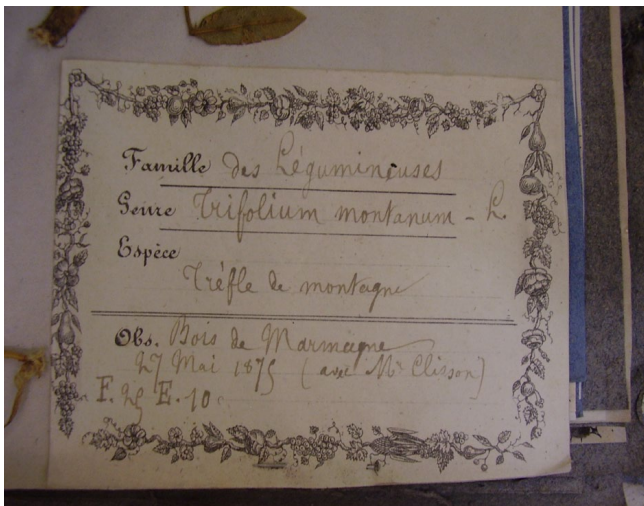 Famille des Légumineuses
Genre Trifolium montanum - L.
Espèce
Trèfle de montagne
Obs. Bois de Marmagne
27 Mai 1875 (avec Mr Clisson)
F. 25 E. 10